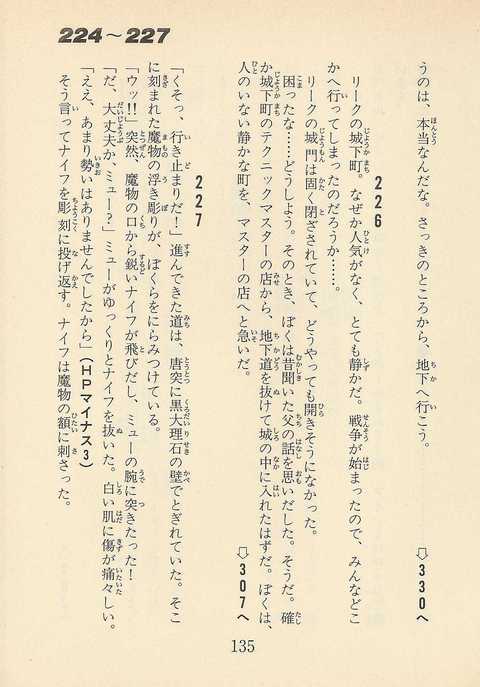 224〜227
うのは、本当なんだな。さっきのところから、地下へ行こう。
⇨330へ
226
リークの城下町。なぜか人気がなく、とても静かだ。戦争が始まったので、みんなどこ
かへ行ってしまったのだろうか……。
リークの城門は固く閉ざされていて、どうやっても開きそうになかった。
困ったな……どうしよう。そのとき、ぼくは昔聞いた父の話を思いだした。そうだ。確
か城下町のテクニックマスターの店から、地下道を抜けて城の中に入れたはずだ。ぼくは、
人のいない静かな町を、マスターの店へと急いだ。
⇨307へ
227
「くそっ、行き止まりだ！」進んできた道は、唐突に黒大理石の壁でとぎれていた。そこ
に刻まれた魔物の浮き彫りが、ぼくらをにらみつけている。
「ウッ!!」突然、魔物の口から鋭いナイフが飛びだし、ミューの腕に突きたった！
「だ、大丈夫か、ミュー？」ミューがゆっくりとナイフを抜いた。白い肌に傷が痛々しい。
「ええ、あまり勢いはありませんでしたから」（HPマイナス3）
そう言ってナイフを彫刻に投げ返す。ナイフは魔物の額に刺さった。
135